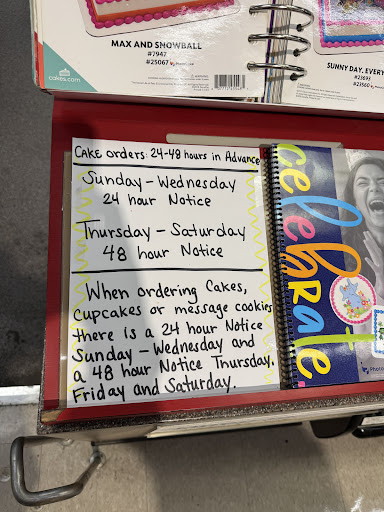 MAX AND SNOWBALL
#7947
#25067
cakes.com
SUNNY DAY, EVERY
#23693
#23560
Cake orders: 24-48 hours in Advance
Sunday - Wednesday
24 hour Notice
Thursday - Saturday
48 hour Notice
When ordering Cakes,
Cupcakes or message cookies
there is a 24 hour Notice
Sunday - Wednesday and
a 48 hour Notice Thursday,
Friday and Saturday.
celebrate